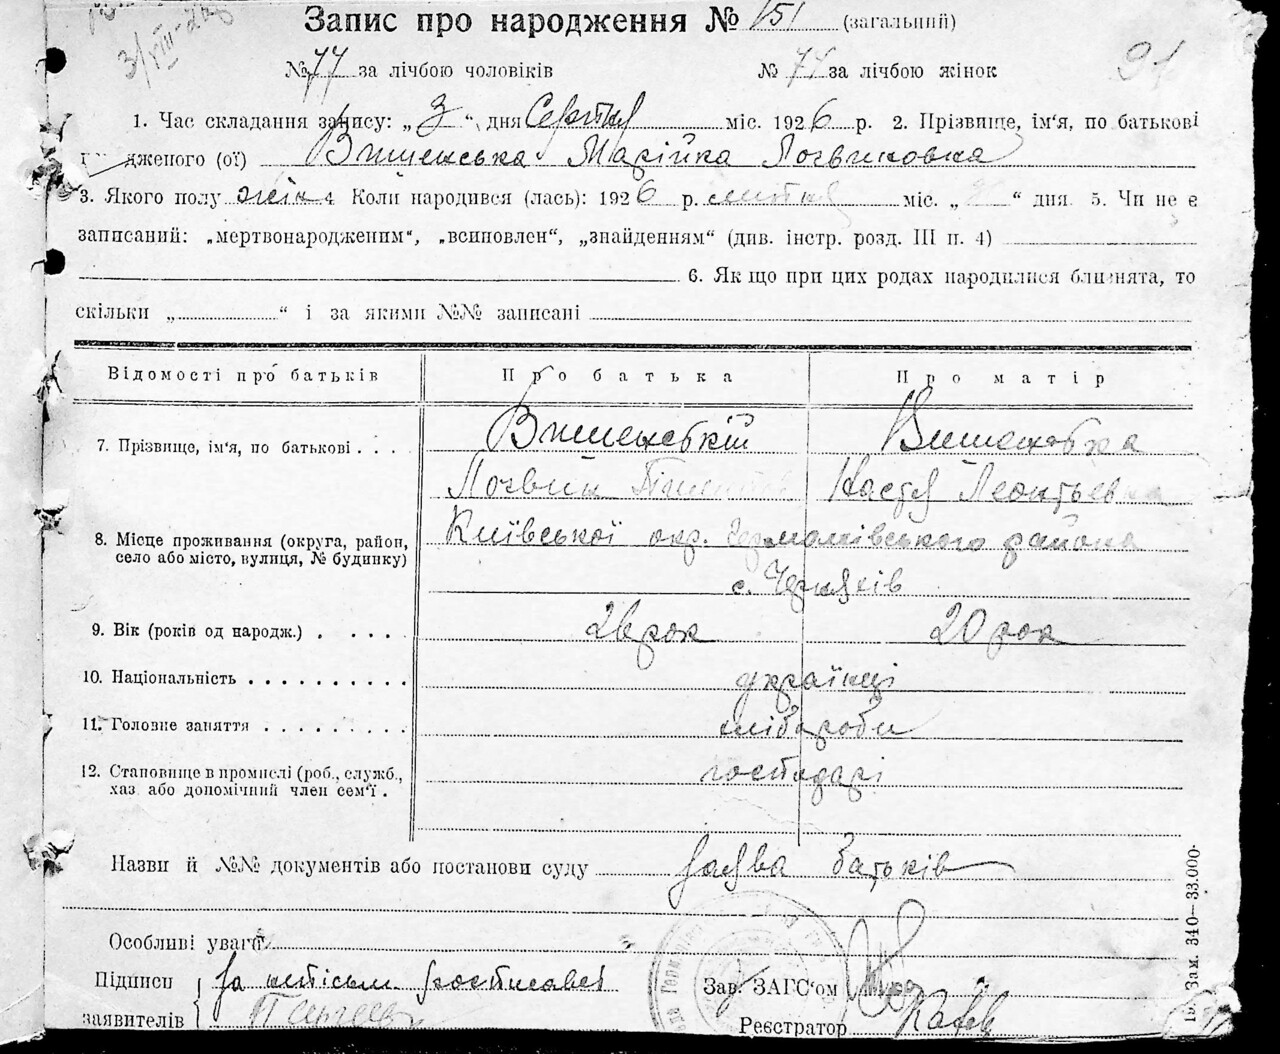 3/VIII-26
Запис про народження № 151 (загальний)
№ 77 за лічбою чоловіків № 74 за лічбою жінок
91
1. Час складання запису: „ 3 “, дня Серпня міс. 1926 р. 2. Прізвище, ім'я, по батькові
дженого (ої) Вишенська Марійка Логвиновна
3. Якого полу жін 4 Коли народився (лась): 1926 р. липня міс. „ “ дня. 5. Чи не є
записаний: „мертвонародженим“, „всиновлен“, „знайденням“ (див. інстр. розд. III п. 4)
6. Як що при цих родах народилися близнята, то
скільки „ “ і за якими №№ записані
Відомості про батьків Про батька Про матір
7. Прізвище, ім'я, по батькові . . . . Вишенський Вишенська
Логвин Настя Леонтьевна
8. Місце проживання (округа, район, село або місто, вулиця, № будинку) Київської окр. Германівського района
с. Черняхів
9. Вік (років од народж.) . . . . . 26 рок 20 рок
10. Національність . . . . . . . . . . українці
11. Головне заняття . . . . . . . . . хлібороби
12. Становище в промислі (роб., служб., хаз. або допомічний член сем'ї . господарі
Назви й №№ документів або постанови суду Заява батьків
Особливі уваги
Підписи За непісьм. росписався Зав. ЗАГС'ом
заявителів Реєстратор
Зам. 340—33.000.